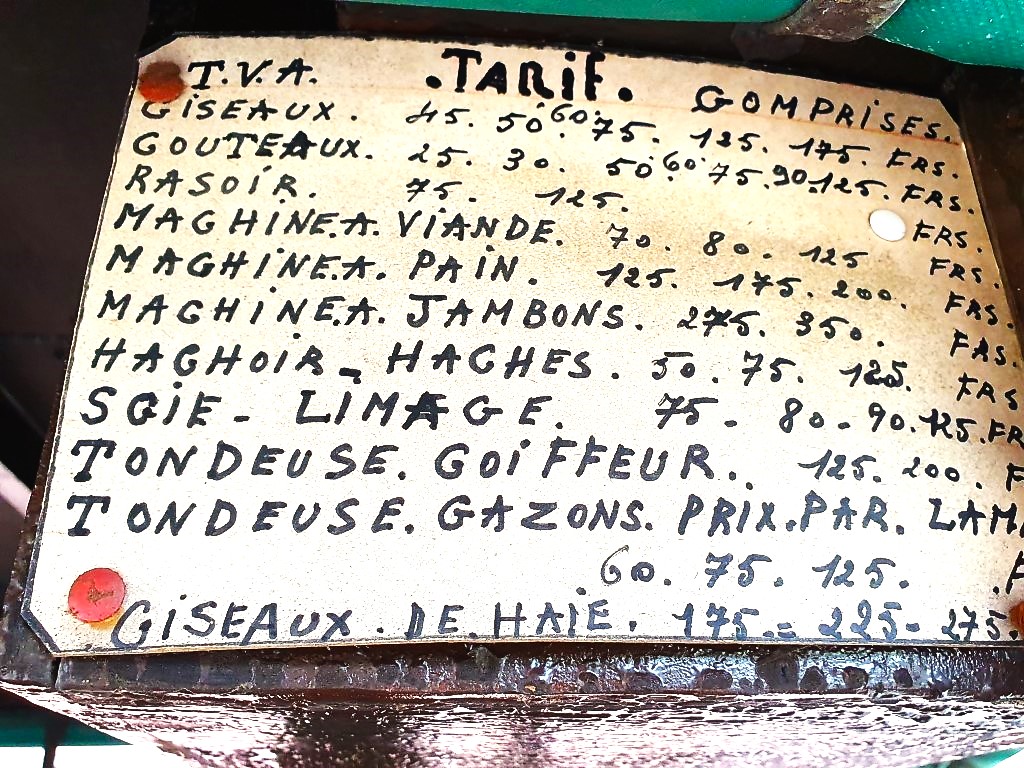 T.V.A. .TARIF. COMPRISES.
CISEAUX. 45. 50. 60. 75. 125. 175. FRS.
COUTEAUX. 25. 30. 50. 60. 75. 90. 125. FRS.
RASOIR. 75. 125. FRS.
MACHINE.A. VIANDE. 70. 80. 125 FRS.
MACHINE.A. PAIN. 125. 175. 200. FRS.
MACHINE.A. JAMBONS. 275. 350. FRS.
HACHOIR - HACHES. 50. 75. 125. FRS
SCIE - LIMAGE. 75 - 80 - 90. 125. FR
TONDEUSE. COIFFEUR.. 125. 200. F
TONDEUSE. GAZONS. PRIX.PAR. LAM
60. 75. 125. .F
CISEAUX. DE.HAIE. 175.= 225- 275.